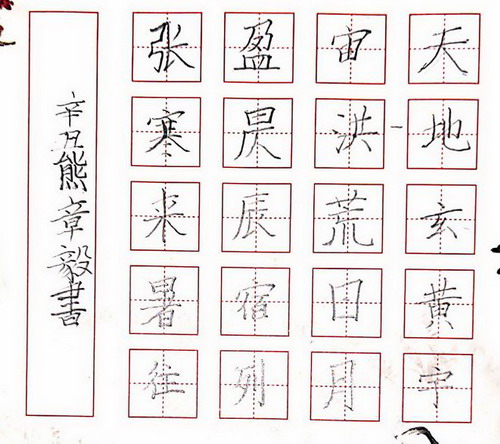 天地玄黄宇
宙洪荒日月
盈昃辰宿列
张寒来暑往
辛丑熊章毅書